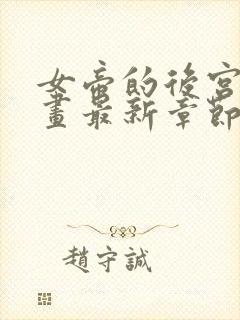 女帝的後宮
畫最新章節
趙守誠